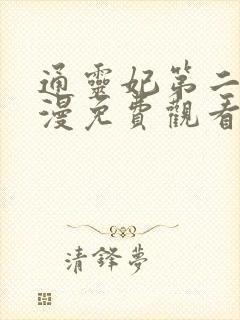 通靈妃第二
漫免費觀看
清鋒夢